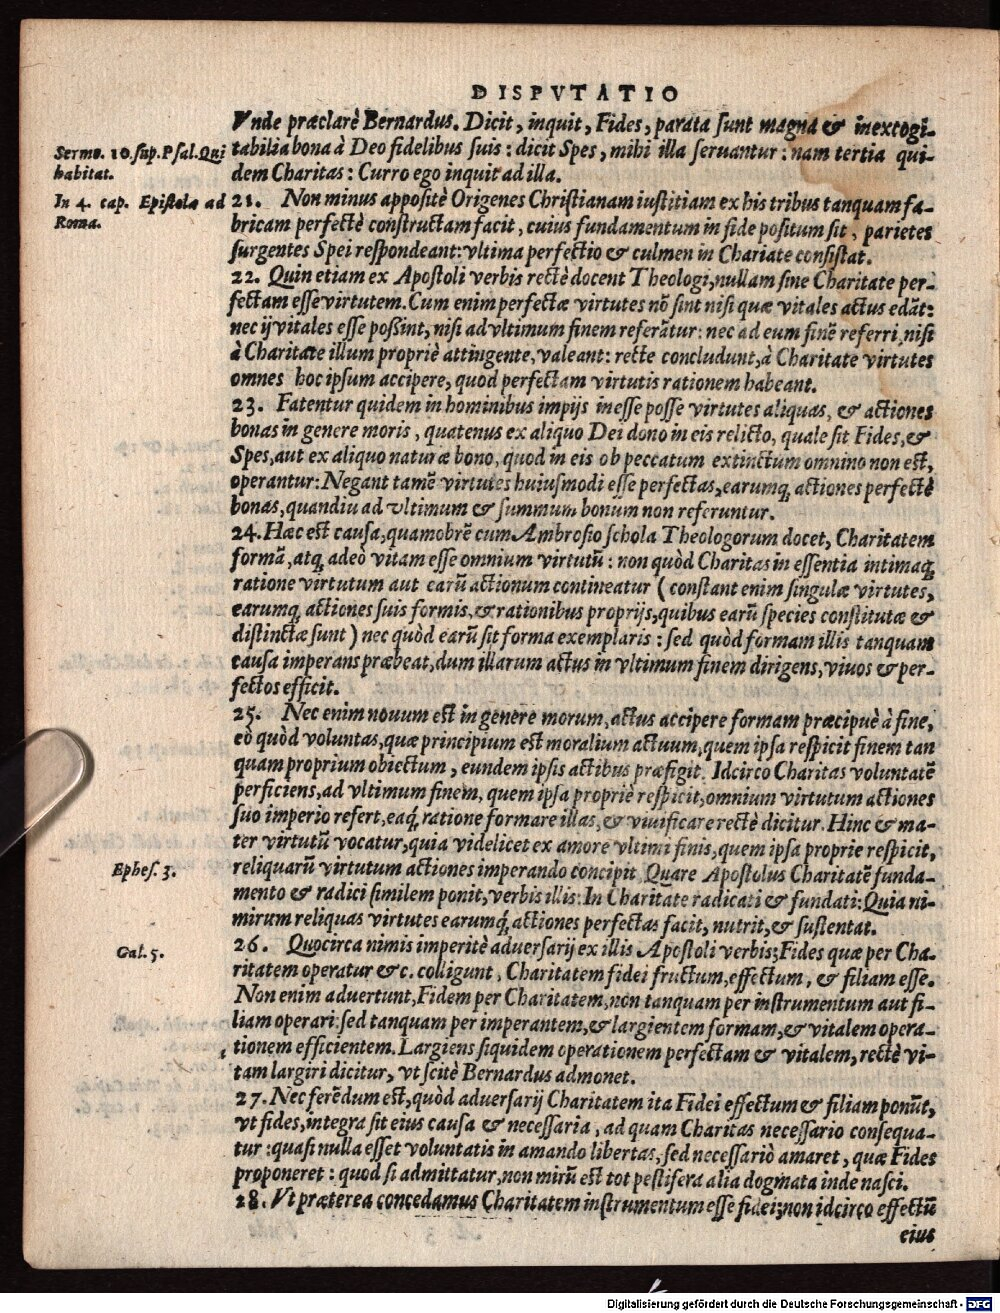 DISPVTATIO
Vnde præclarè Bernardus. Dicit, inquit, Fides, parata sunt magna & inexcogi-
tabilia bona à Deo fidelibus suis: dicit Spes, mihi illa seruantur: nam tertia qui-
dem Charitas: Curro ego inquit ad illa.
Sermo. 10. sup. Psal. Qui
habitat.
In 4. cap. Epistolæ ad
Roma.
21. Non minus appositè Origenes Christianam iustitiam ex his tribus tanquam fa-
bricam perfectè constructam facit, cuius fundamentum in fide positum sit, parietes
surgentes Spei respondeant: vltima perfectio & culmen in Chariate consistat.
22. Quin etiam ex Apostoli verbis rectè docent Theologi, nullam sine Charitate per-
fectam esse virtutem. Cum enim perfectæ virtutes nõ sint nisi quæ vitales actus edãt:
nec ij vitales esse possint, nisi ad vltimum finem referãtur: nec ad eum finẽ referri, nisi
à Charitate illum propriè attingente, valeant: recte concludunt, à Charitate virtutes
omnes hoc ipsum accipere, quod perfectam virtutis rationem habeant.
23. Fatentur quidem in hominibus impijs inesse posse virtutes aliquas, & actiones
bonas in genere moris, quatenus ex aliquo Dei dono in eis relicto, quale sit Fides, &
Spes, aut ex aliquo naturæ bono, quod in eis ob peccatum extinctum omnino non est,
operantur: Negant tamẽ virtutes huiusmodi esse perfectas, earumq; actiones perfectè
bonas, quandiu ad vltimum & summum bonum non referuntur.
24. Hæc est causa, quamobrẽ cum Ambrosio schola Theologorum docet, Charitatem
formã, atq; adeò vitam esse omnium virtutũ: non quòd Charitas in essentia intimaq;
ratione virtutum aut earũ actionum contineatur (constant enim singulæ virtutes,
earumq; actiones suis formis, & rationibus proprijs, quibus earũ species constitutæ &
distinctæ sunt) nec quòd earũ sit forma exemplaris: sed quòd formam illis tanquam
causa imperans præbeat, dum illarum actus in vltimum finem dirigens, viuos & per-
fectos efficit.
25. Nec enim nouum est in genere morum, actus accipere formam præcipuè à fine,
eò quòd voluntas, quæ principium est moralium actuum, quem ipsa respicit finem tan
quam proprium obiectum, eundem ipsis actibus præfigit. Idcirco Charitas voluntatẽ
perficiens, ad vltimum finem, quem ipsa propriè respicit, omnium virtutum actiones
suo imperio refert, eaq; ratione formare illas, & viuificare rectè dicitur. Hinc & ma-
ter virtutũ vocatur, quia videlicet ex amore vltimi finis, quem ipsa proprie respicit,
reliquarũ virtutum actiones imperando concipit. Quare Apostolus Charitatẽ funda-
mento & radici similem ponit, verbis illis: In Charitate radicati & fundati: Quia ni-
mirum reliquas virtutes earumq́; actiones perfectas facit, nutrit, & sustentat.
Ephes. 3.
Gal. 5.
26. Quocirca nimis imperitè aduersarij ex illis Apostoli verbis; Fides quæ per Cha-
ritatem operatur &c. colligunt, Charitatem fidei fructum, effectum, & filiam esse.
Non enim aduertunt, Fidem per Charitatem, non tanquam per instrumentum aut fi-
liam operari: sed tanquam per imperantem, & largientem formam, & vitalem opera-
tionem efficientem. Largiens siquidem operationem perfectam & vitalem, rectè vi-
tam largiri dicitur, vt scitè Bernardus admonet.
27. Nec ferẽdum est, quòd aduersarij Charitatem ita Fidei effectum & filiam ponũt,
vt fides, integra sit eius causa & necessaria, ad quam Charitas necessario consequa-
tur: quasi nulla esset voluntatis in amando libertas, sed necessariò amaret, quæ Fides
proponeret: quod si admittatur, non mirũ est tot pestifera alia dogmata inde nasci.
28. Vt præterea concedamus Charitatem instrumentum esse fidei; non idcirco effectũ
eius
Digitalisierung gefördert durch die Deutsche Forschungsgemeinschaft - DFG